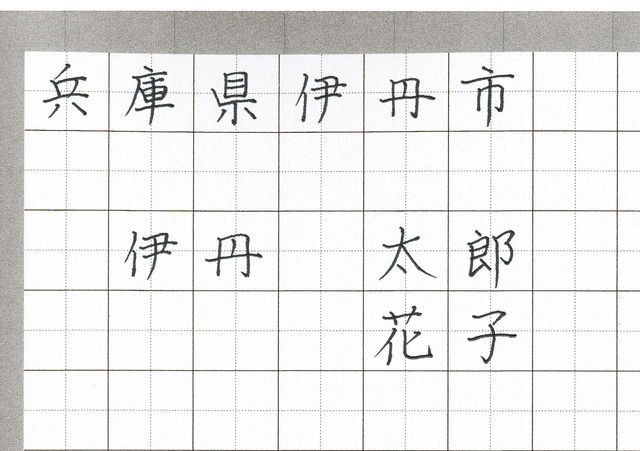 兵庫県伊丹市
伊丹 太郎
花子